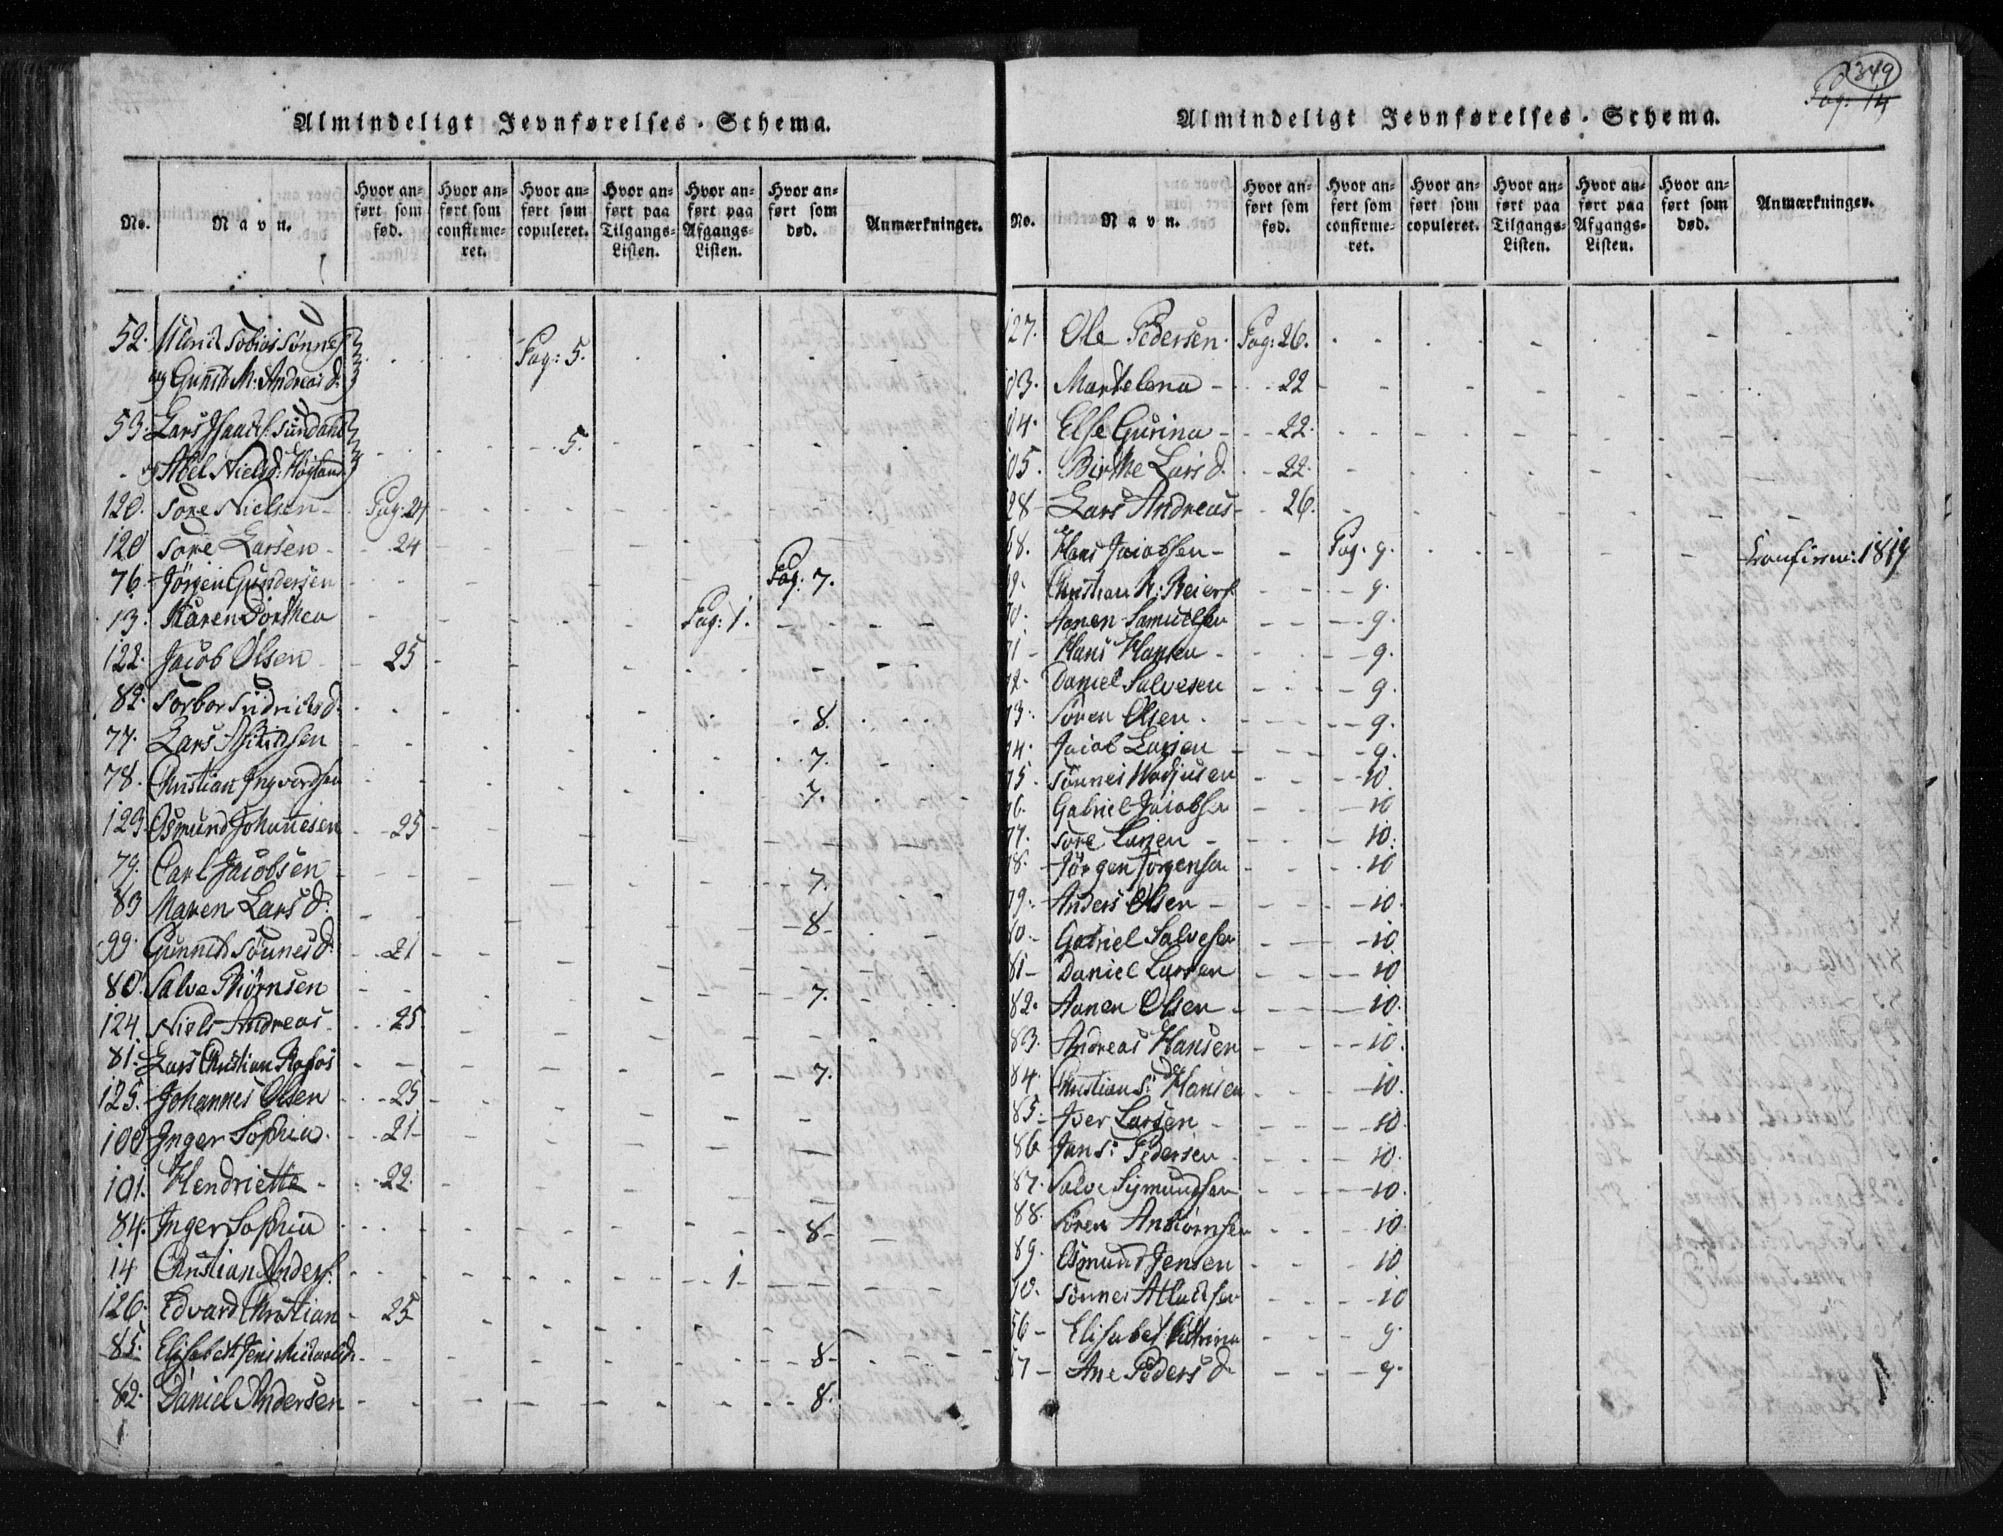 Almindeligt Jevnførelses-Schema.
No. Navn. Hvor anført som fød. Hvor anført som confirmeret. Hvor anført som copuleret. Hvor anført paa Tilgangs-Listen. Hvor anført paa Afgangs-Listen. Hvor anført som død. Anmærkninger.
52. Tobias Sønnes
og Gunild M: Andreas d. Pag: 5.
53. Lars Isaacs: Sundahl
og Abel Nielsd: Høyland 5.
120. Tore Nielsen Pag: 24
120 Tore Larsen 24
76. Jörgen Gundersen Pag: 7.
13. Karen Dorthea Pag: 1.
122. Jacob Olsen 25
82. Torbor 8.
77. Lars 7.
78. Christian Ingvordsen 7.
123. Osmund Johannesen 25
79. Carl Jacobsen 7.
83 Maren Lars d. 8
99. Gunnild Sønnes d. 21
80. Salve Biørnsen 7.
124. Niels Andreas 25
81. Lars Christian 7.
125. Johannes Olsen 25
100 Inger Sophia 21
101. Hendriette 22
84. Inger Sophia 8
14 Christian Anders: 1
126. Edvard Christian 25
85. Elisabeth Jens 8
82. Daniel Andersen 8.
349
Pag: 14
Almindeligt Jevnførelses-Schema.
No. Navn. Hvor anført som fød. Hvor anført som confirmeret. Hvor anført som copuleret. Hvor anført paa Tilgangs-Listen. Hvor anført paa Afgangs-Listen. Hvor anført som død. Anmærkninger.
27. Ole Pedersen Pag: 26.
03. Marthe Lena 22
04. Else Gurina 22.
05. Birthe Lars d. 22
28 Lars Andreas 26.
8. Hans Jacobsen Pag. 9. Confirm: 1819
Christian R: Reiers: 9.
0. Aanen Samuelsen 9.
1 Hans Hansen 9.
2. Daniel Salvesen 9
3. Søren Olsen 9.
4. Jacob Larsen 9.
5. Sønnes 10.
6. Gabriel Jacobsen 10
7. Tore Larsen 10.
8. Jörgen Jörgensen 10
9. Anders Olsen 10.
0. Gabriel Salvesen 10
81 Daniel Larsen 10
82. Aanen Olsen 10.
83. Andreas Hansen 10.
84. Christian S: Hansen 10.
85. Iver Larsen 10
86 Jans: Pedersen 10.
87. Salve Sigmundsen 10.
88. Søren Anbiørnsen 10
89. Osmund Jensen 10
0. Sønnes 10
6 Elisabet Catrina 9.
7 Ane Peders d. 9.